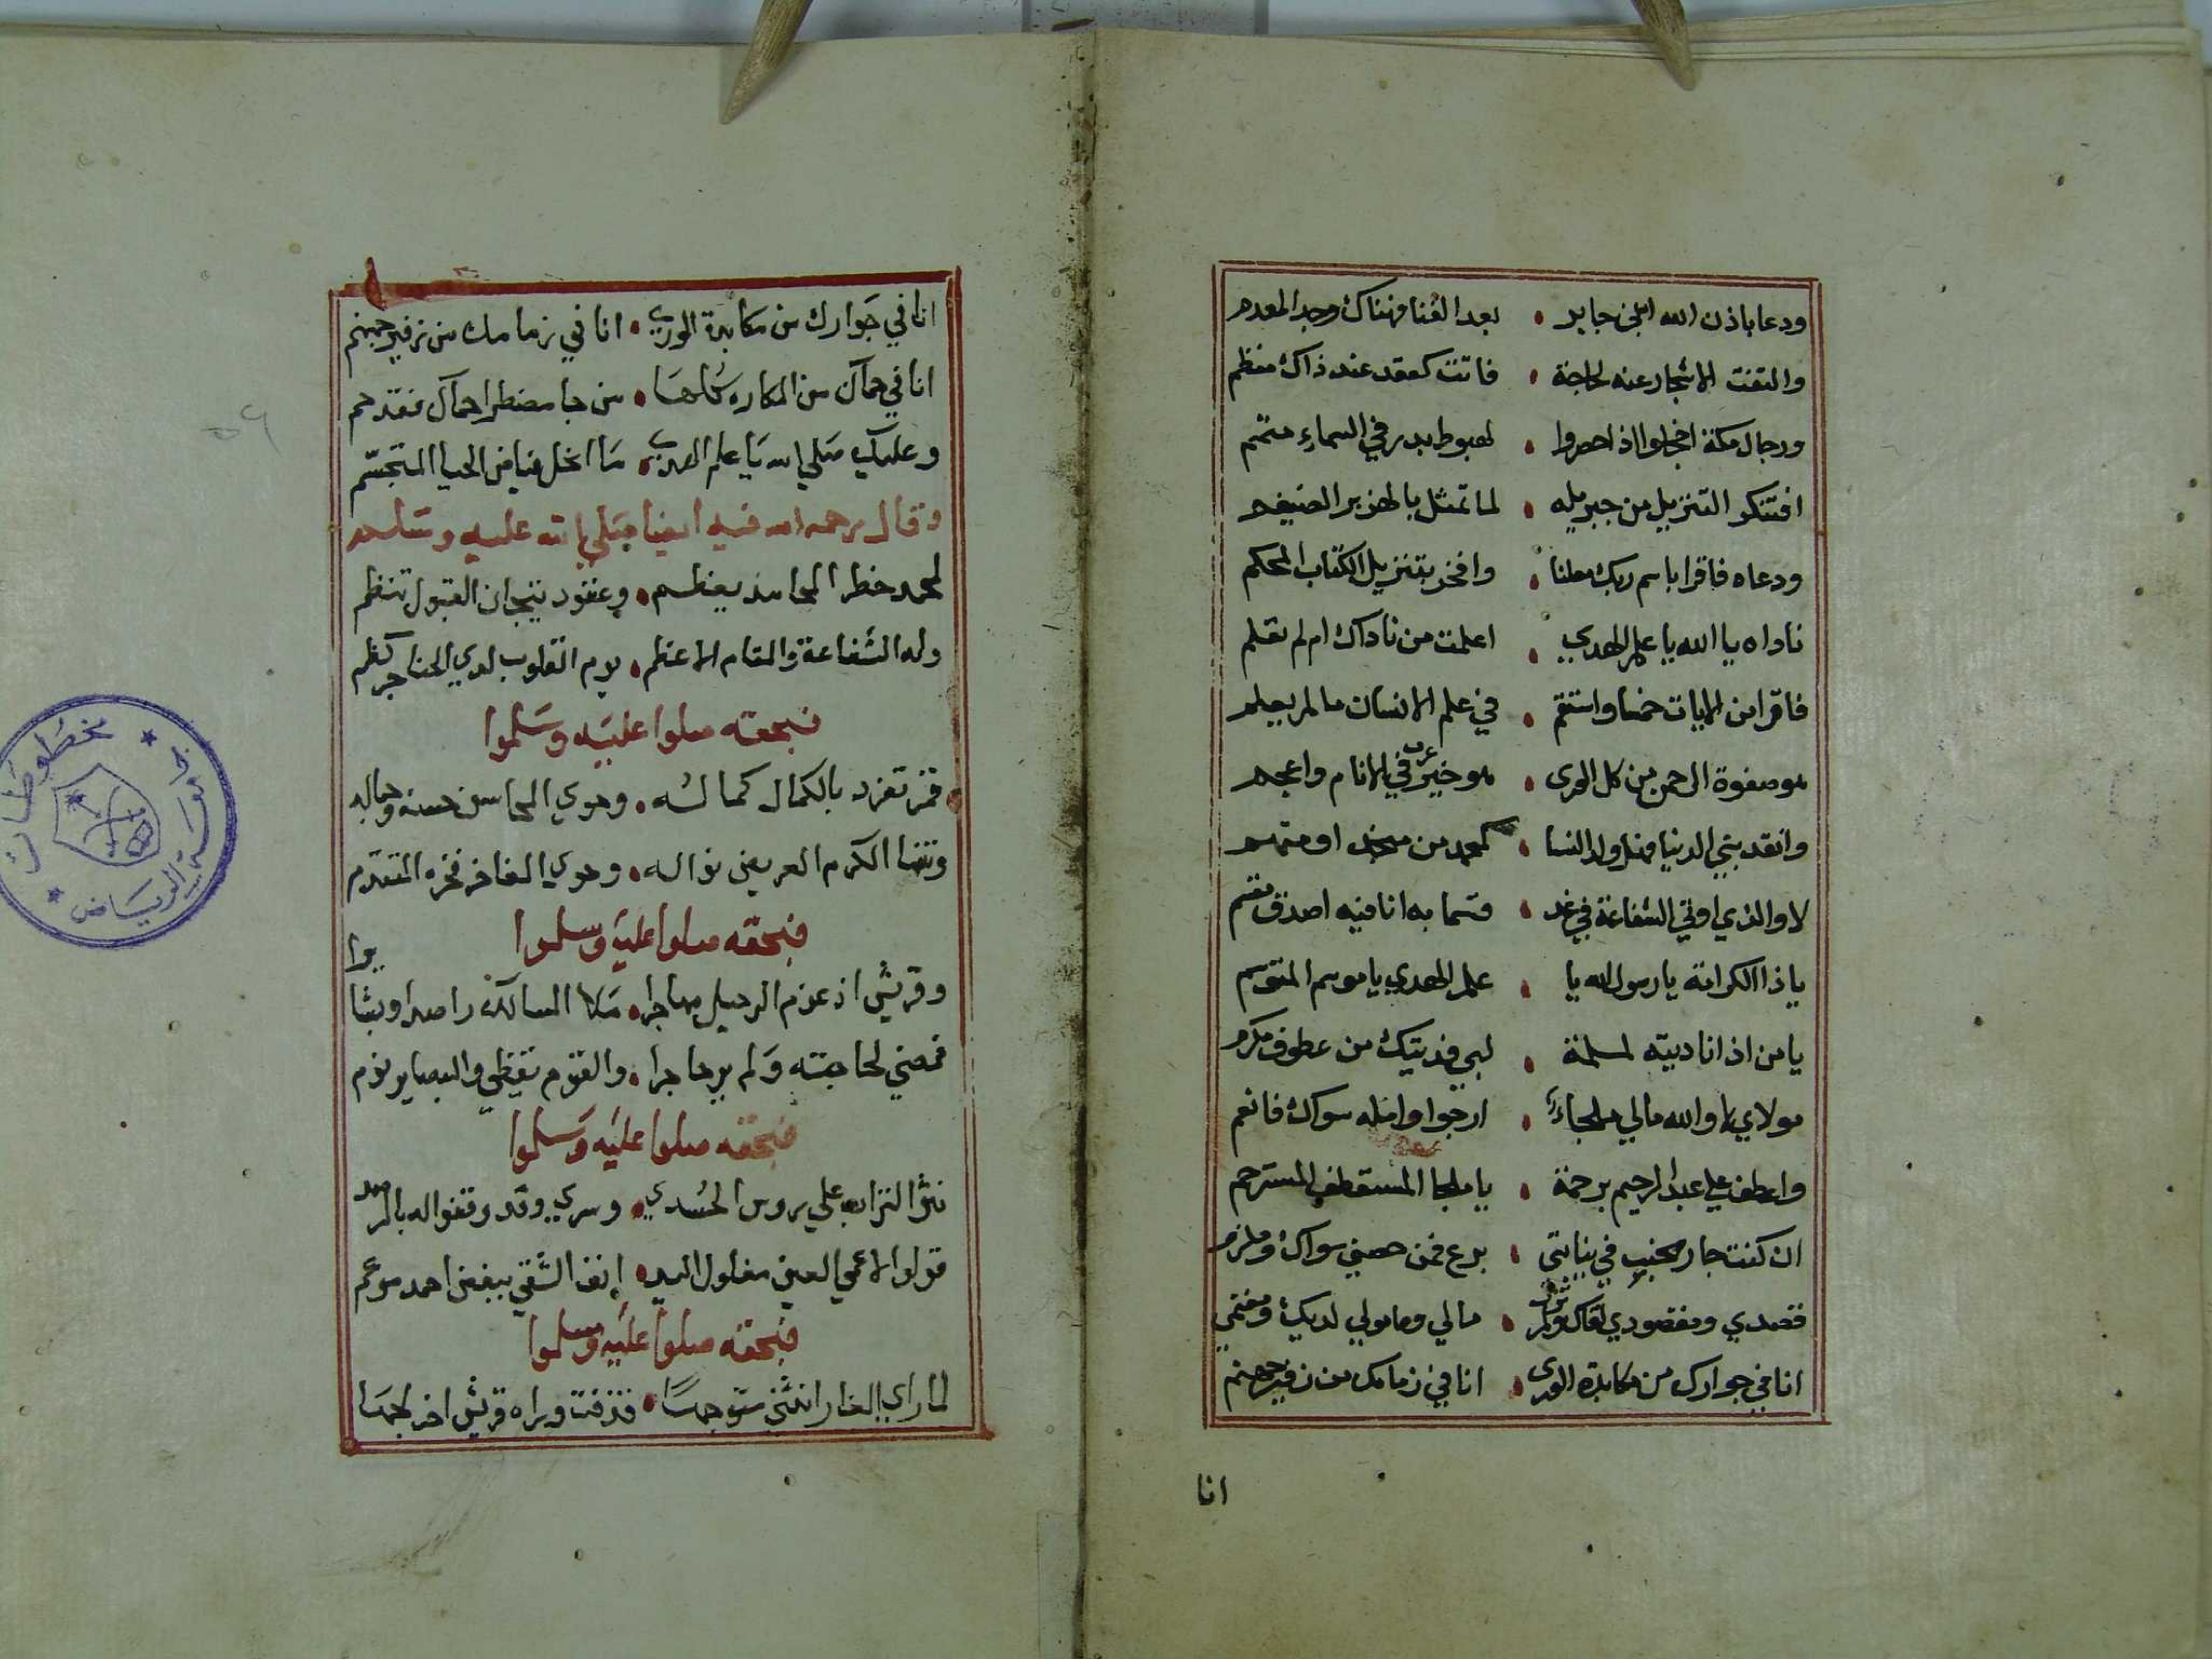 ودعا باذن الله ابني جابر • بعد الفنا فهناك وجد المعدم
والتفت الاشجار عنه لحاجة • فاتت كعقد عند ذاك منظم
ورجال مكة اخجلوا اذ احصروا • لهبوط بدر في السماء متمم
افتنكر التنزيل من جبريله • لما تمثل بالهزبر الضيغم
ودعاه فاقرا باسم ربك معلنا • وافخر بتنزيل الكتاب المحكم
ناداه يا الله يا علم الهدي • اعلمت من ناداك ام لم تعلم
فاقرا من الايات خمسا واستقم • في علم الانسان ما لم يعلم
هو صفوة الرحمن من كل الورى • هو خير عرب في الانام واعجم
وانقد بني الدنيا فهل ولد النسا • كمحمد من منجد او متهم
لا والذي اوتي الشفاعة في غد • قسما به انا فيه اصدق مقسم
يا ذا الكرامة يا رسول الله يا • علم الهدي يا موسم المتوسم
يا من اذا ناديته لملمة • لبي فديتك من عطوف مكرم
مولاي لا والله مالي ملجاء • ارجوا وامله سواك فانعم
واعطف علي عبد الرحيم برحمة • يا ملجا المستعطف المسترحم
ان كنت جار محنب في نيابتي • برع فمن حصني سواك وملزم
قصدي ومقصودي لقاك وثم • مالي ومامولي لديك ومغنمي
انا في جوارك من مكابدة الورى • انا في زمامك من زفير جهنم
انا
انا في جوارك من مكابدة الوري • انا في زمامك من زفير جهنم
انا في حماك من المكاره كلها • من جا مضطرا حماك فقد حم
وعليك صلي الله يا علم الهدي • ما انهل فياض الحيا المتجسم
وقال رحمه الله فيه ايضا صلي الله عليه وسلم
لمحمد خطر المحامد يعظم • وعقود تيجان القبول تنظم
وله الشفاعة والمقام الاعظم • يوم القلوب لدي الحناجر كظم
فبحقه صلوا عليه وسلموا
قمر تفرد بالكمال كماله • وحوي المحاسن حسنه وجماله
وتنها الكرم العريض نواله • وحوي المفاخر فخره المتقدم
فبحقه صلوا عليه وسلموا
وقريش اذ عزم الرحيل مهاجرا • ملا المسالك راصدا وبثابوا
فمضي لحاجته ولم ير حاجرا • والقوم يقظي والبصاير نوم
فبحقه صلوا عليه وسلموا
نثر التراب علي روس الحسدي • وسري وقد وقفوا له بالمرصد
قولوا لاعمي العين مغلول اليد • انف الشقي ببغض احمد مرغم
فبحقه صلوا عليه وسلموا
لما راي الغار انثني متوجها • فقفت وراه قريش اخر لجها
مخطوطات
الرياض